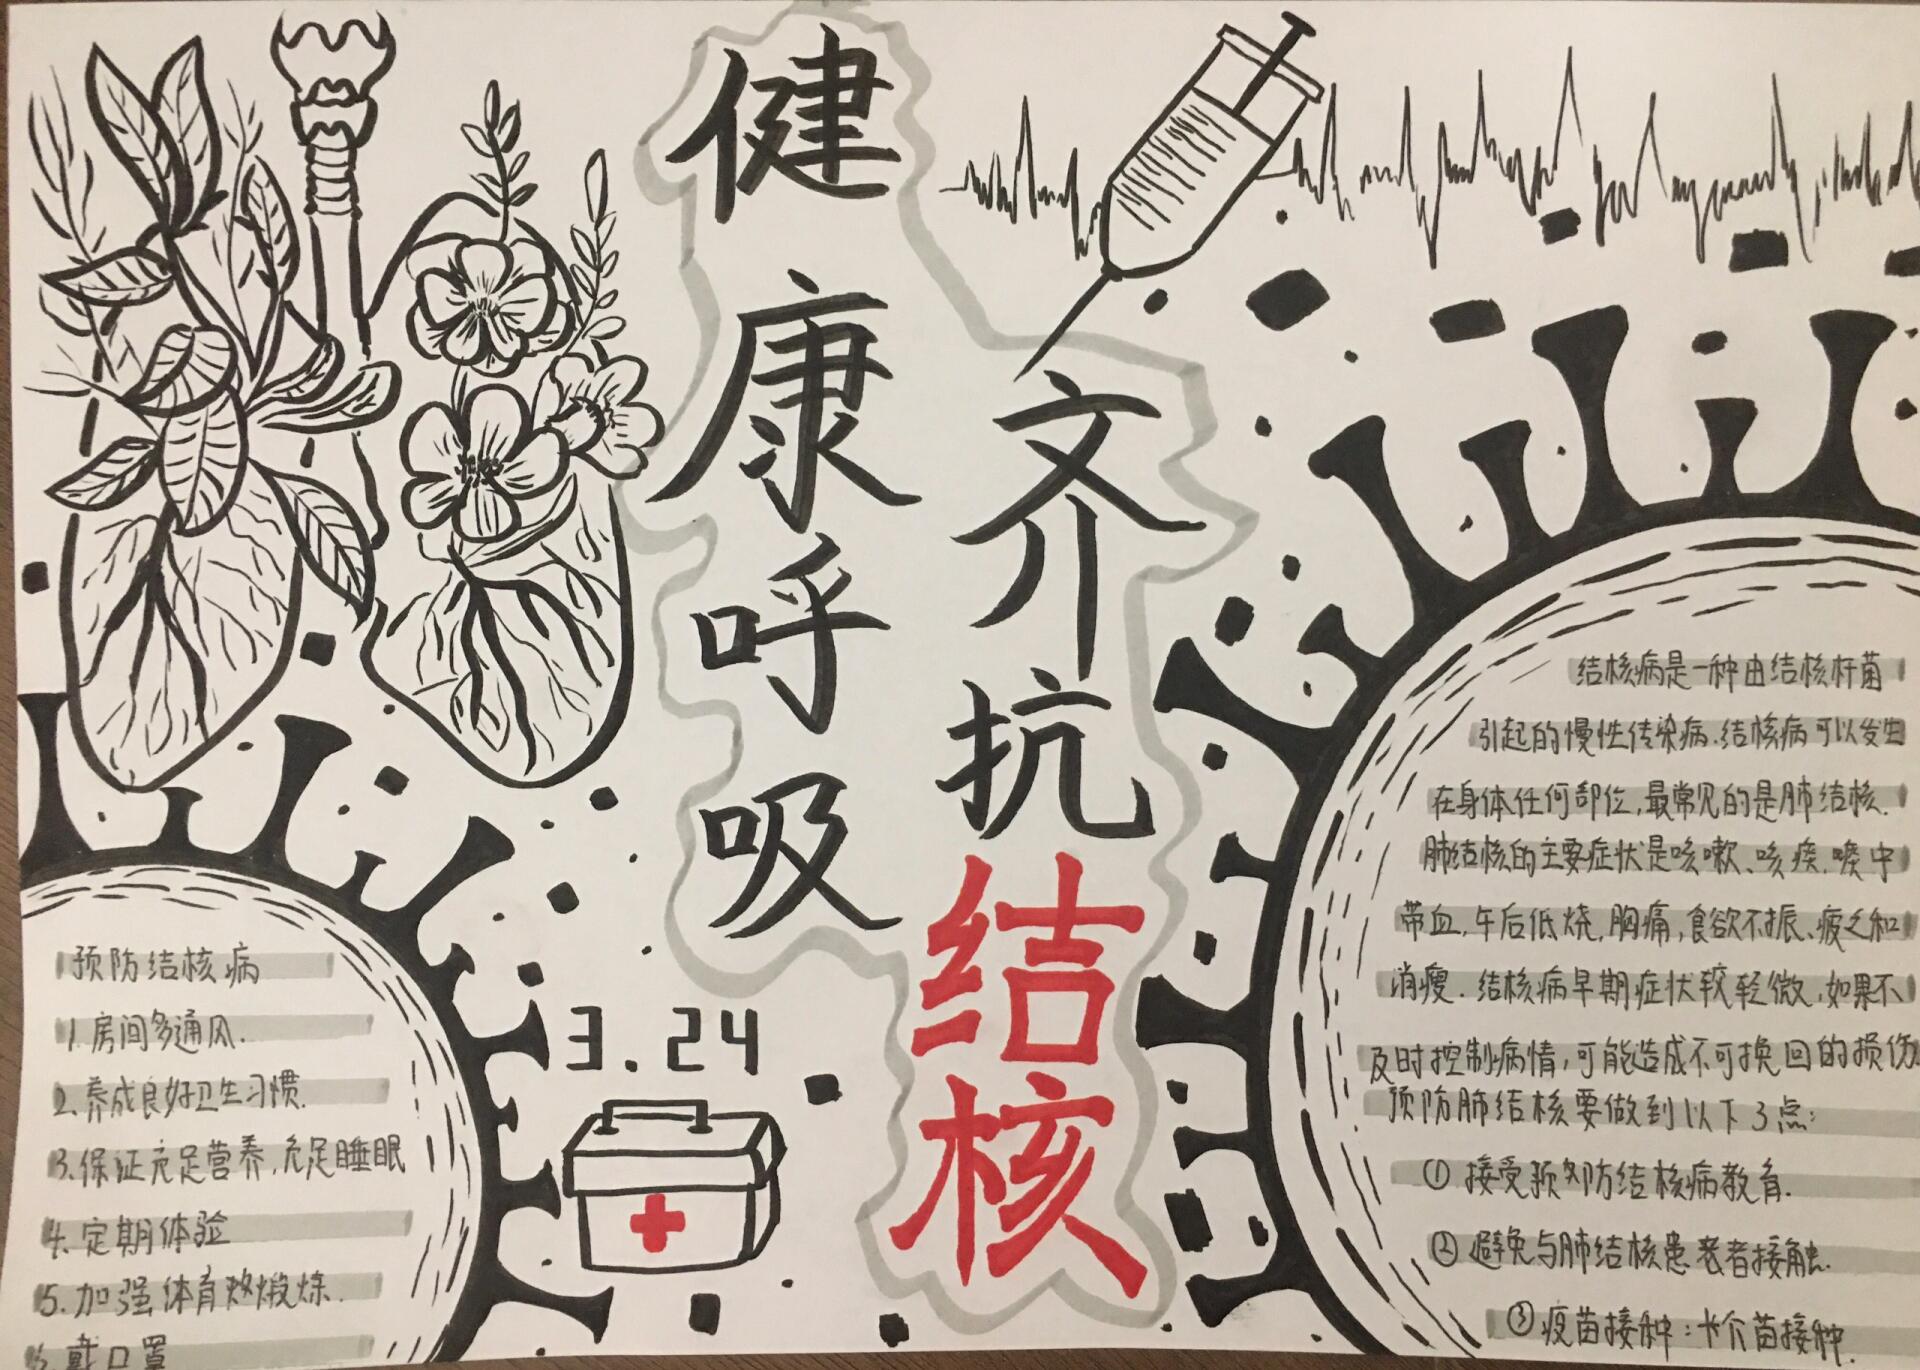 健康呼吸
齐抗结核
3.24
结核病是一种由结核杆菌
引起的慢性传染病.结核病可以发生
在身体任何部位,最常见的是肺结核.
肺结核的主要症状是咳嗽、咳痰.痰中
带血,午后低烧,胸痛,食欲不振、疲乏和
消瘦.结核病早期症状较轻微,如果不
及时控制病情,可能造成不可挽回的损伤.
预防肺结核要做到以下3点:
① 接受预防结核病教育.
② 避免与肺结核患者接触.
③ 疫苗接种:卡介苗接种.
预防结核病
1.房间多通风.
2.养成良好卫生习惯.
3.保证充足营养,充足睡眠
4.定期体验
5.加强体育煅炼.
6.戴口罩